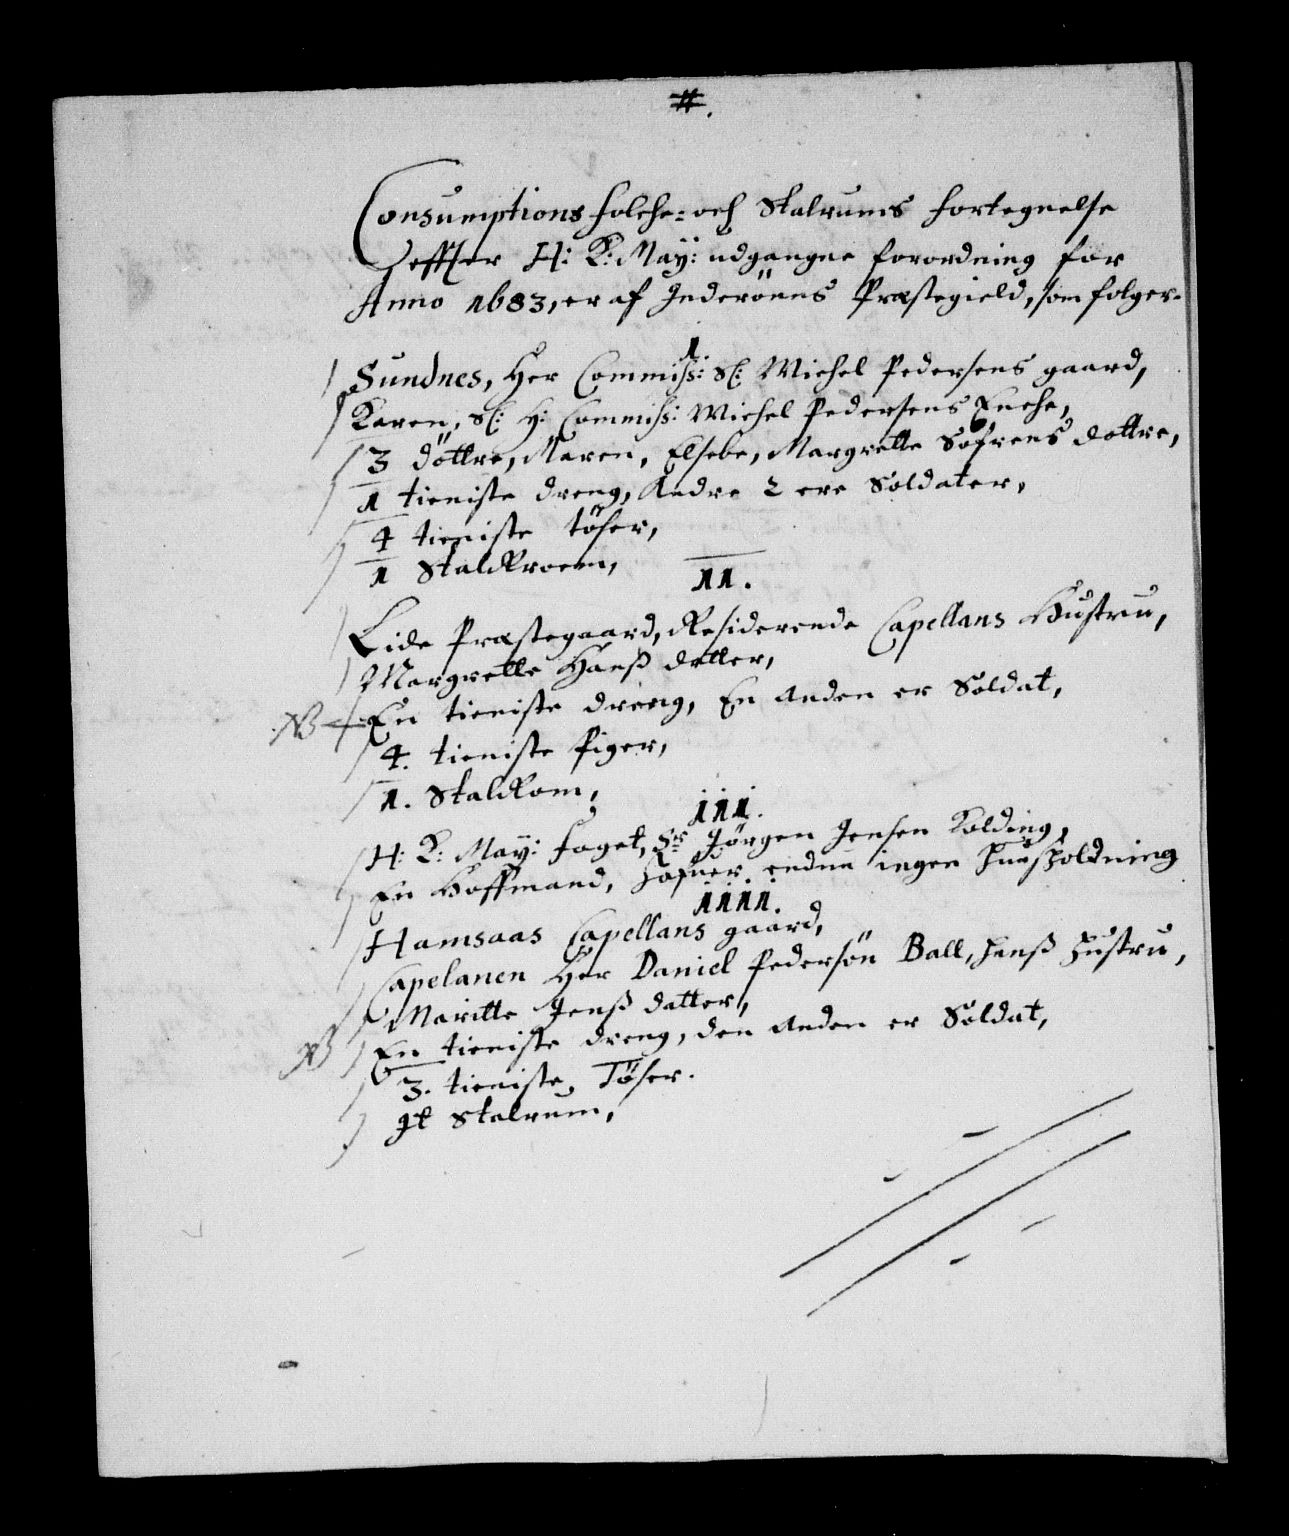 #.
Consumptions folche= och Stalrums fortegnelse
effter H: K: May: udgangne forordning for
Anno 1683, er af Inderönns Præstegield, som folger.
1.
Sundnes, Her Commiss: Sl: Michel Pedersens gaard,
Karen, Sl: H: Commiss: Michel Pedersens Enche,
3 döttre, Maren, Elsebe, Margrette Sofrens dottre,
1 tieniste dreng, Andre 2 ere Soldater,
4 tieniste töser,
1 Staldkroem,
11.
Eide Præstegaard, Residerende Capellans Hustru,
Margrette Hanß datter,
NB En tieniste dreng, En anden er Soldat,
4. tieniste Piger,
1. Staldkom,
iii.
H: K: May: foget, Sr Jörgen Jensen Kolding,
En Hoffmand, hafuer endnu ingen huusholdning
iiii.
Hamsaas Capellans gaard,
Capelanen Her Daniel Pedersön Ball, hanß hustru,
Maritte Jenß datter,
NB En tieniste dreng, den anden er Soldat,
3. tieniste Töser.
It Stalrum,